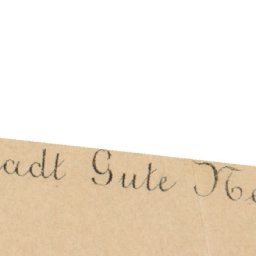 adt Gute Ne